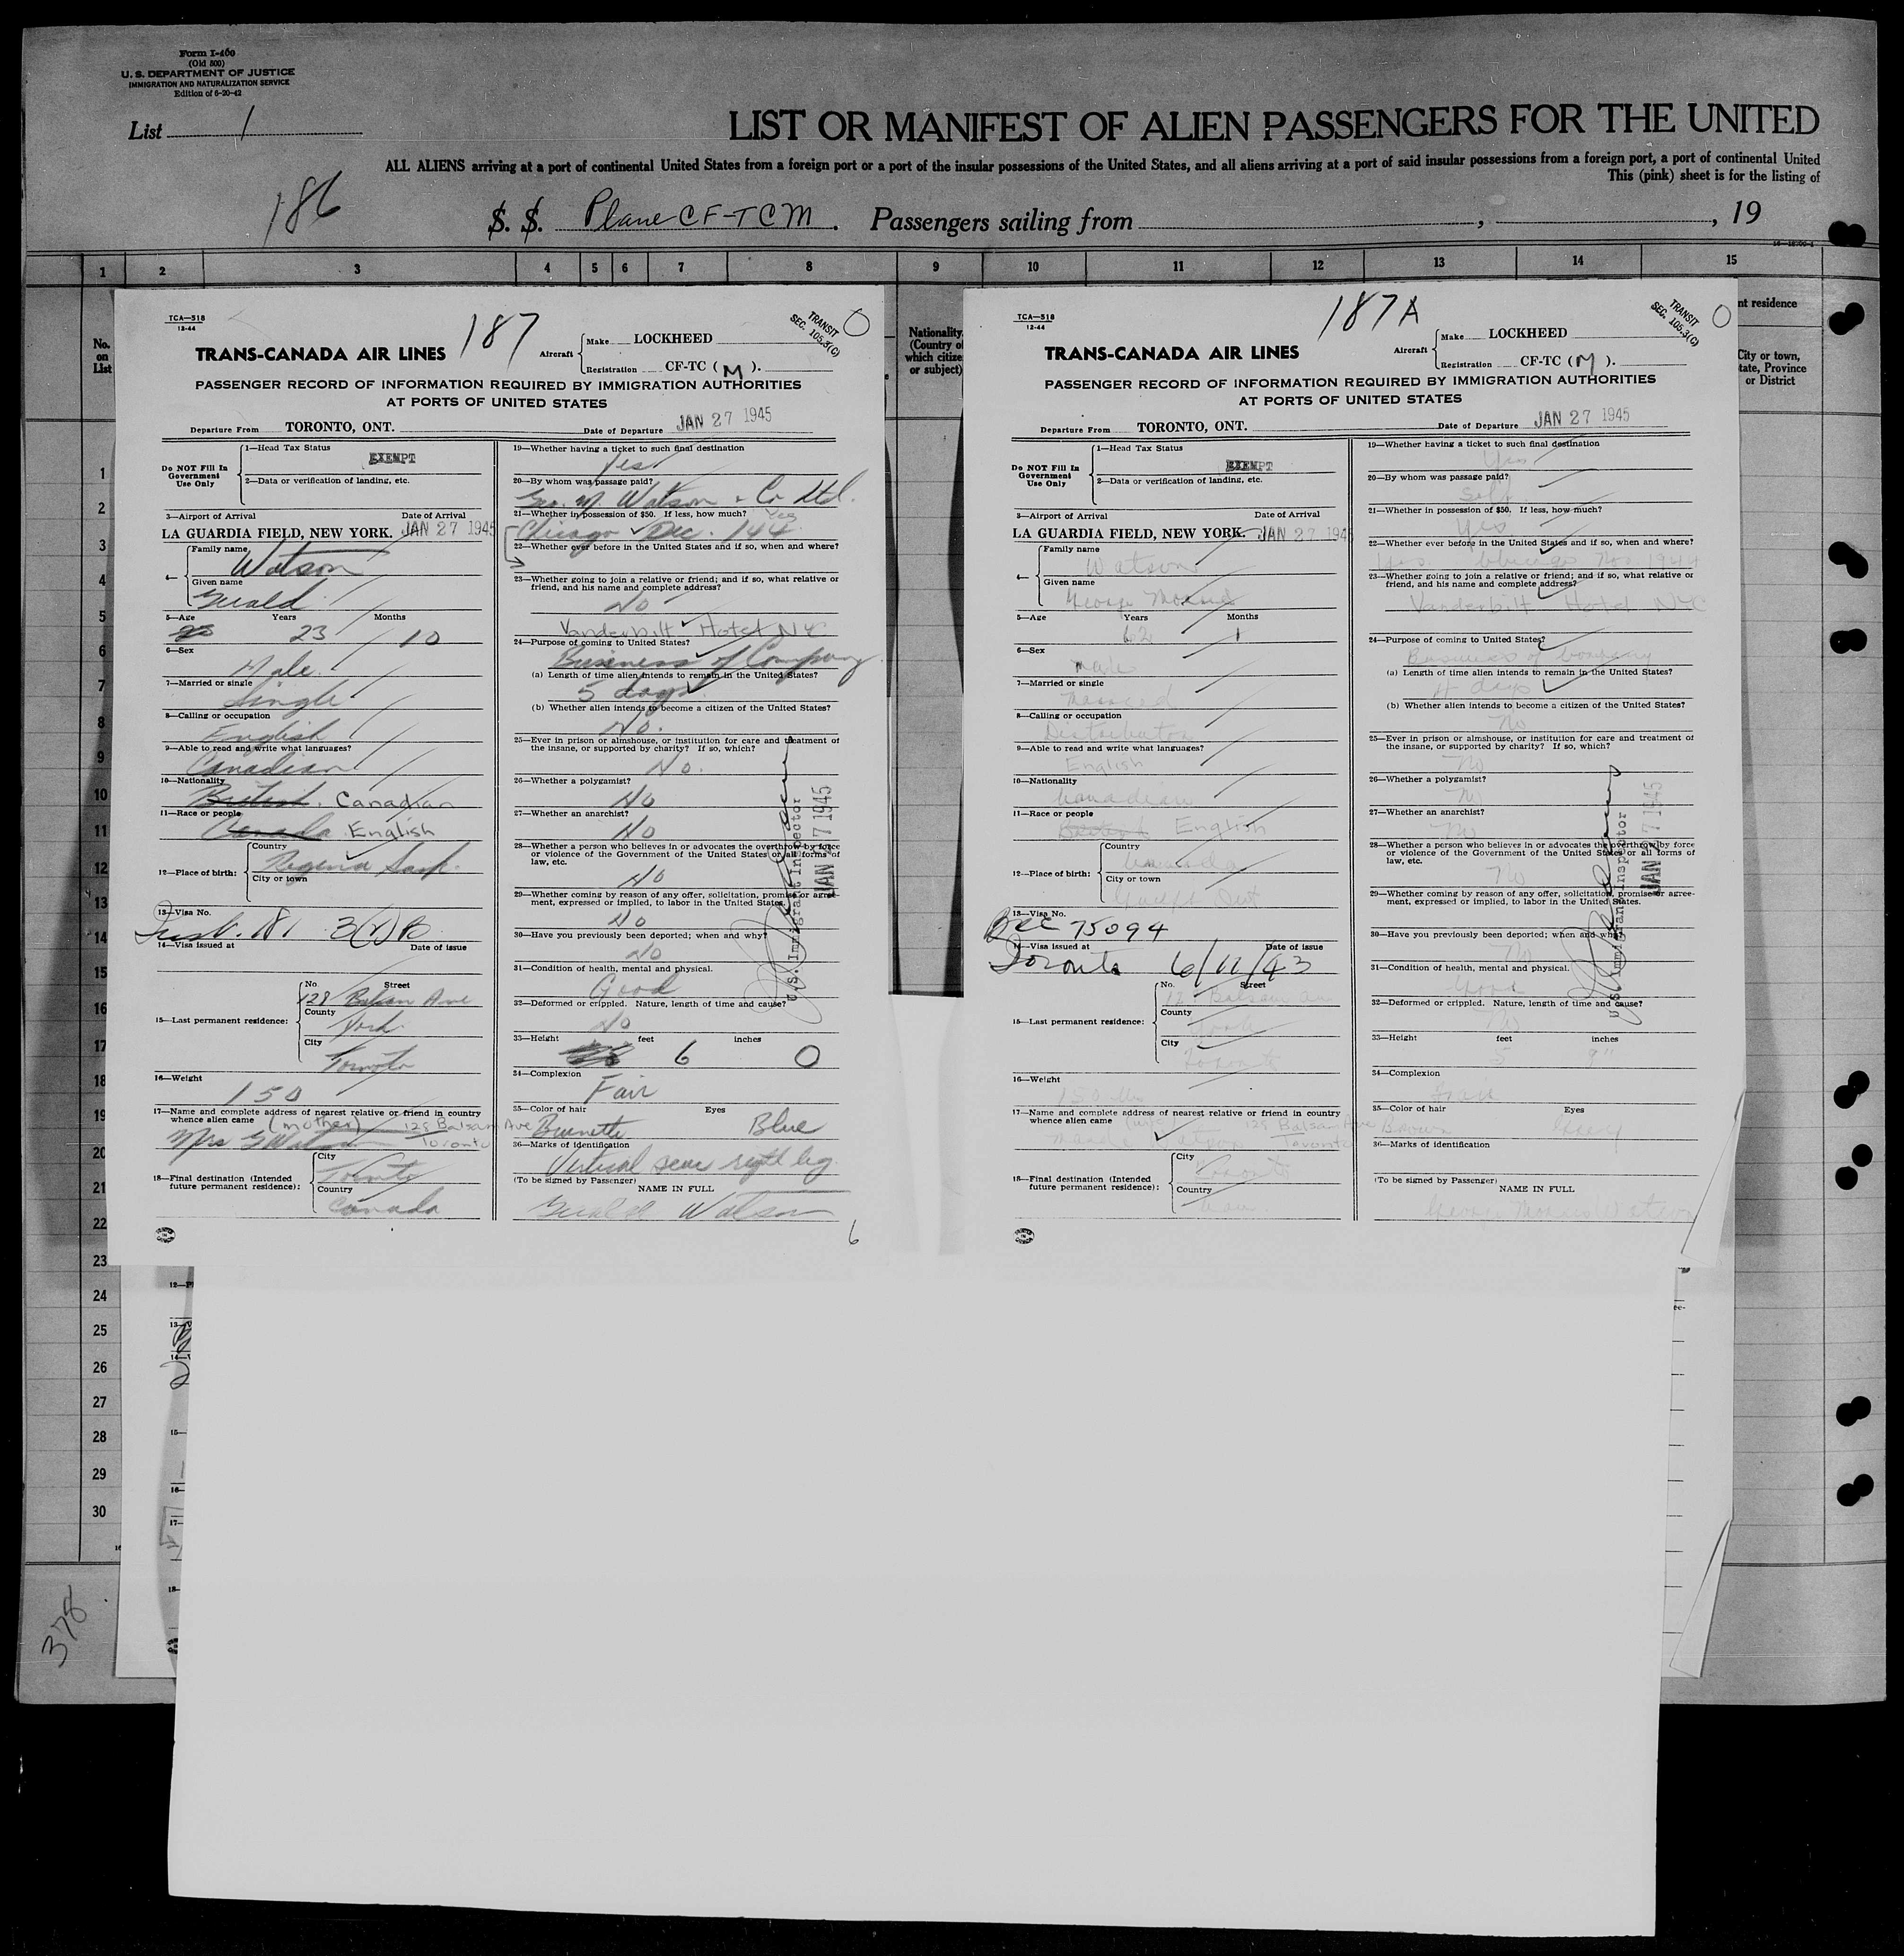 Form I-460
(Old 500)
U. S. DEPARTMENT OF JUSTICE
IMMIGRATION AND NATURALIZATION SERVICE
Edition of 6-20-42
List 1
LIST OR MANIFEST OF ALIEN PASSENGERS FOR THE UNITED
ALL ALIENS arriving at a port of continental United States from a foreign port or a port of the insular possessions of the United States, and all aliens arriving at a port of said insular possessions from a foreign port, a port of continental United
This (pink) sheet is for the listing of
186
S. S. Plane CF-TCM. Passengers sailing from , , 19
1 2 3 4 5 6 7 8 9 10 11 12 13 14 15
No. on List
Nationality. (Country of which citizen or subject)
nt residence
City or town, tate, Province or District
1
2
3
4
5
6
7
8
9
10
11
12
13
14
15
16
17
18
19
20
21
22
23
24
25
26
27
28
29
30
378
TCA—518
12-44
187
TRANSIT
SEC. 105.3(C)
TRANS-CANADA AIR LINES
Aircraft
Make LOCKHEED
Registration CF-TC ( M ).
PASSENGER RECORD OF INFORMATION REQUIRED BY IMMIGRATION AUTHORITIES
AT PORTS OF UNITED STATES
Departure From TORONTO, ONT. Date of Departure JAN 27 1945
Do NOT Fill In Government Use Only
1—Head Tax Status
EXEMPT
2—Data or verification of landing, etc.
3—Airport of Arrival Date of Arrival
LA GUARDIA FIELD, NEW YORK. JAN 27 1945
4—
Family name
Watson
Given name
Gerald
5—Age Years Months
23 10
6—Sex
Male
7—Married or single
Single
8—Calling or occupation
English
9—Able to read and write what languages?
Canadian
10—Nationality
British. Canadian
11—Race or people
Canada English
12—Place of birth:
Country
Regina Sask.
City or town
13—Visa No.
181 3(2)B
14—Visa issued at Date of issue
15—Last permanent residence:
No. Street
128 Balsam Ave
County
York
City
Toronto
16—Weight
150
17—Name and complete address of nearest relative or friend in country
whence alien came (mother) 128 Balsam Ave
Mrs G Watson Toronto
18—Final destination (Intended future permanent residence):
City
Toronto
Country
Canada
19—Whether having a ticket to such final destination
Yes
20—By whom was passage paid?
Geo. M. Watson & Co Ltd.
21—Whether in possession of $50. If less, how much? Yes
Chicago Dec. 144
22—Whether ever before in the United States and if so, when and where?
23—Whether going to join a relative or friend; and if so, what relative or
friend, and his name and complete address?
No
Vanderbilt Hotel NYC
24—Purpose of coming to United States?
Business of Company
(a) Length of time alien intends to remain in the United States?
5 days
(b) Whether alien intends to become a citizen of the United States?
No.
25—Ever in prison or almshouse, or institution for care and treatment of
the insane, or supported by charity? If so, which?
No.
26—Whether a polygamist?
No
27—Whether an anarchist?
No
28—Whether a person who believes in or advocates the overthrow by force
or violence of the Government of the United States or all forms of
law, etc.
No
29—Whether coming by reason of any offer, solicitation, promise or agree-
ment, expressed or implied, to labor in the United States.
No
30—Have you previously been deported; when and why?
No
31—Condition of health, mental and physical.
Good
32—Deformed or crippled. Nature, length of time and cause?
No
33—Height feet inches
6 0
34—Complexion
Fair
35—Color of hair Eyes
Brunette Blue
36—Marks of identification
Vertical scar right leg
(To be signed by Passenger)
NAME IN FULL
Gerald Watson
6
U.S. Immigrant Inspector
JAN 27 1945
TCA—518
12-44
187A
TRANSIT
SEC. 105.3(C)
TRANS-CANADA AIR LINES
Aircraft
Make LOCKHEED
Registration CF-TC ( M ).
PASSENGER RECORD OF INFORMATION REQUIRED BY IMMIGRATION AUTHORITIES
AT PORTS OF UNITED STATES
Departure From TORONTO, ONT. Date of Departure JAN 27 1945
Do NOT Fill In Government Use Only
1—Head Tax Status
EXEMPT
2—Data or verification of landing, etc.
3—Airport of Arrival Date of Arrival
LA GUARDIA FIELD, NEW YORK. JAN 27 1945
4—
Family name
Watson
Given name
George Morris
5—Age Years Months
62 1
6—Sex
Male
7—Married or single
Married
8—Calling or occupation
Distributor
9—Able to read and write what languages?
English
10—Nationality
Canadian
11—Race or people
British English
12—Place of birth:
Country
Canada
City or town
Guelph Ont
13—Visa No.
75094
14—Visa issued at Date of issue
Toronto 6/11/43
15—Last permanent residence:
No. Street
128 Balsam Ave
County
York
City
Toronto
16—Weight
150 lbs
17—Name and complete address of nearest relative or friend in country
whence alien came (wife) 128 Balsam Ave
Watson Toronto
18—Final destination (Intended future permanent residence):
City
Toronto
Country
Can
19—Whether having a ticket to such final destination
Yes
20—By whom was passage paid?
Self
21—Whether in possession of $50. If less, how much?
Yes
22—Whether ever before in the United States and if so, when and where?
Yes Chicago Nov 1944
23—Whether going to join a relative or friend; and if so, what relative or
friend, and his name and complete address?
Vanderbilt Hotel NYC
24—Purpose of coming to United States?
Business of Company
(a) Length of time alien intends to remain in the United States?
4 days
(b) Whether alien intends to become a citizen of the United States?
No
25—Ever in prison or almshouse, or institution for care and treatment of
the insane, or supported by charity? If so, which?
No
26—Whether a polygamist?
No
27—Whether an anarchist?
No
28—Whether a person who believes in or advocates the overthrow by force
or violence of the Government of the United States or all forms of
law, etc.
No
29—Whether coming by reason of any offer, solicitation, promise or agree-
ment, expressed or implied, to labor in the United States.
30—Have you previously been deported; when and why?
No
31—Condition of health, mental and physical.
Good
32—Deformed or crippled. Nature, length of time and cause?
No
33—Height feet inches
5 9"
34—Complexion
35—Color of hair Eyes
Brown Grey
36—Marks of identification
(To be signed by Passenger)
NAME IN FULL
George Morris Watson
U.S. Immigrant Inspector
JAN 27 1945